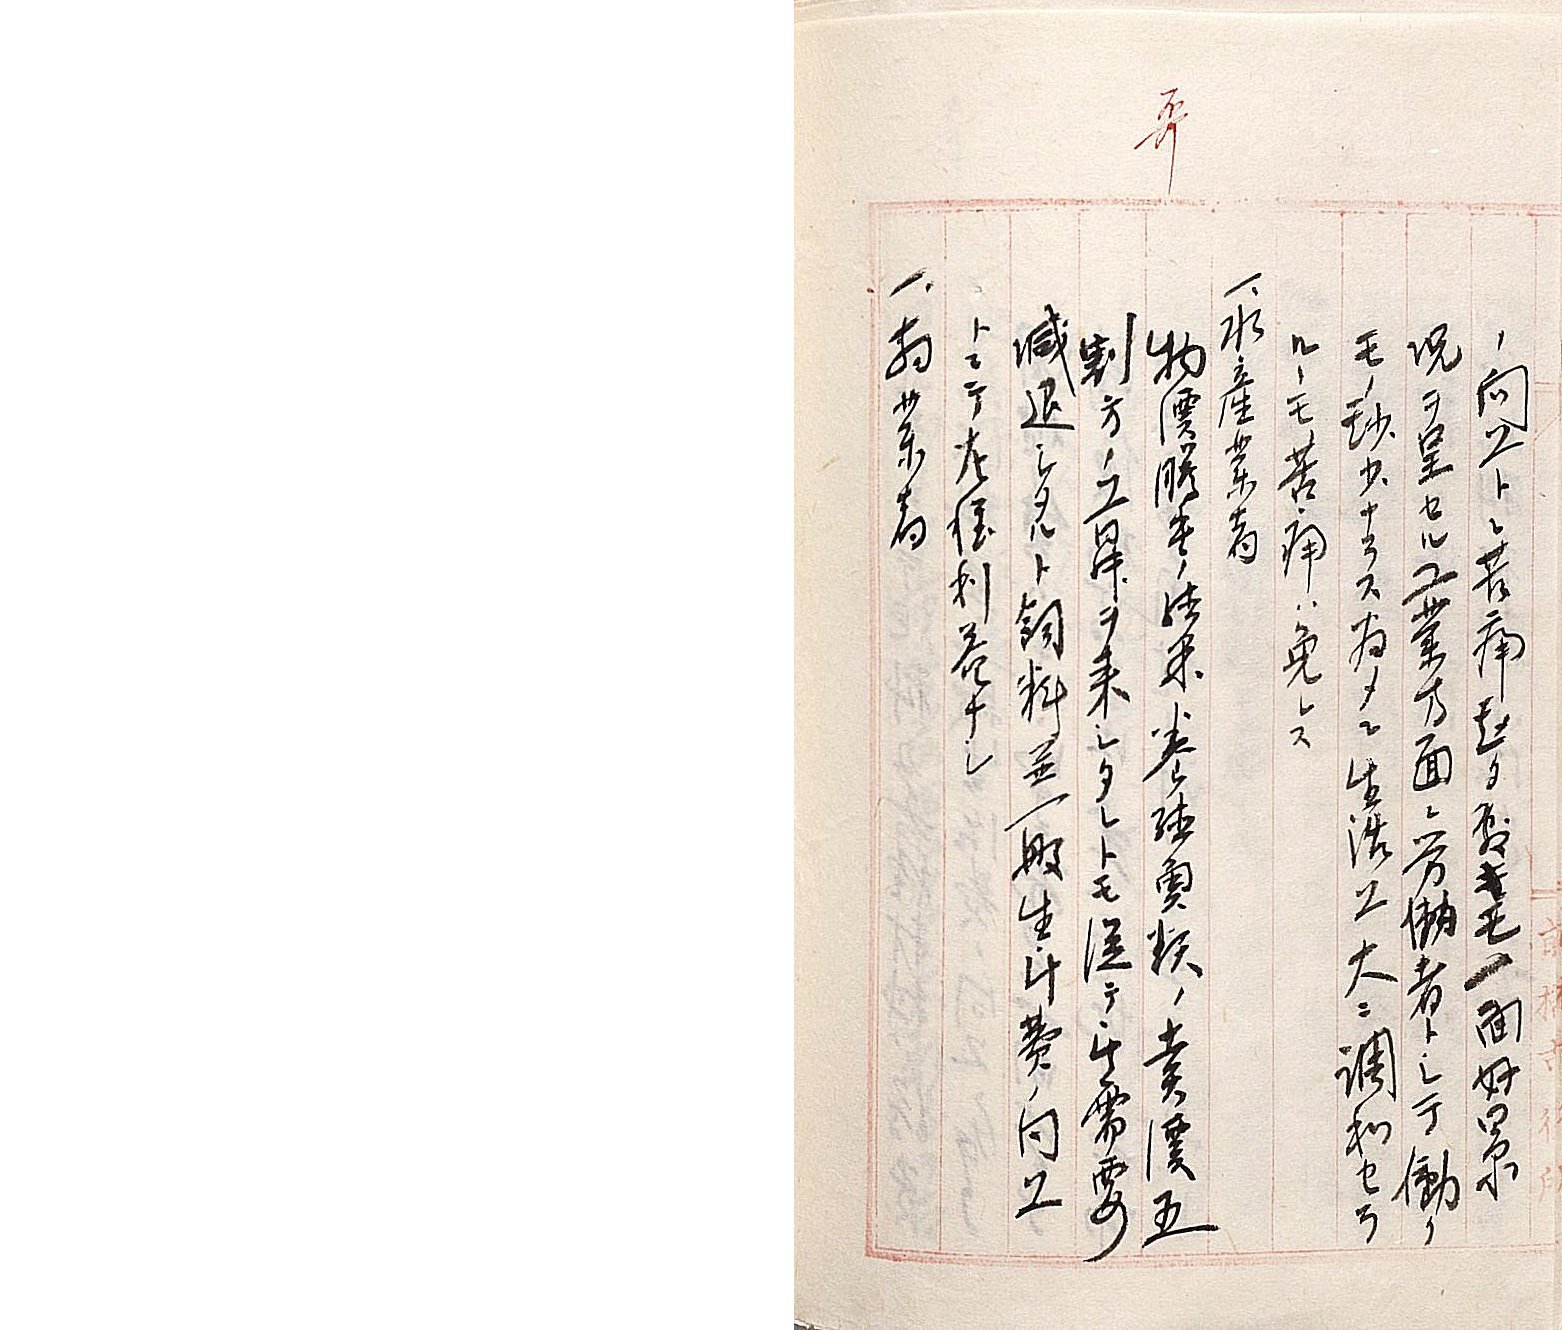 ノ向上ト苦痛起タ
況ヲ呈セル工業方面ニ労働者トシテ働ク
モノ尠少ナラス為メニ生活上大ニ調和セラ
ルーモ苦痛ハ免レス
一、水産業者
物價騰貴ノ結果養殖魚類ノ賣價五
割方ノ上昇ヲ来シタレトモ従テ需要
減退シタルト飼料並一般生計費ノ向上
トニテ差程利益ナシ
一、商業者
前橋市役所